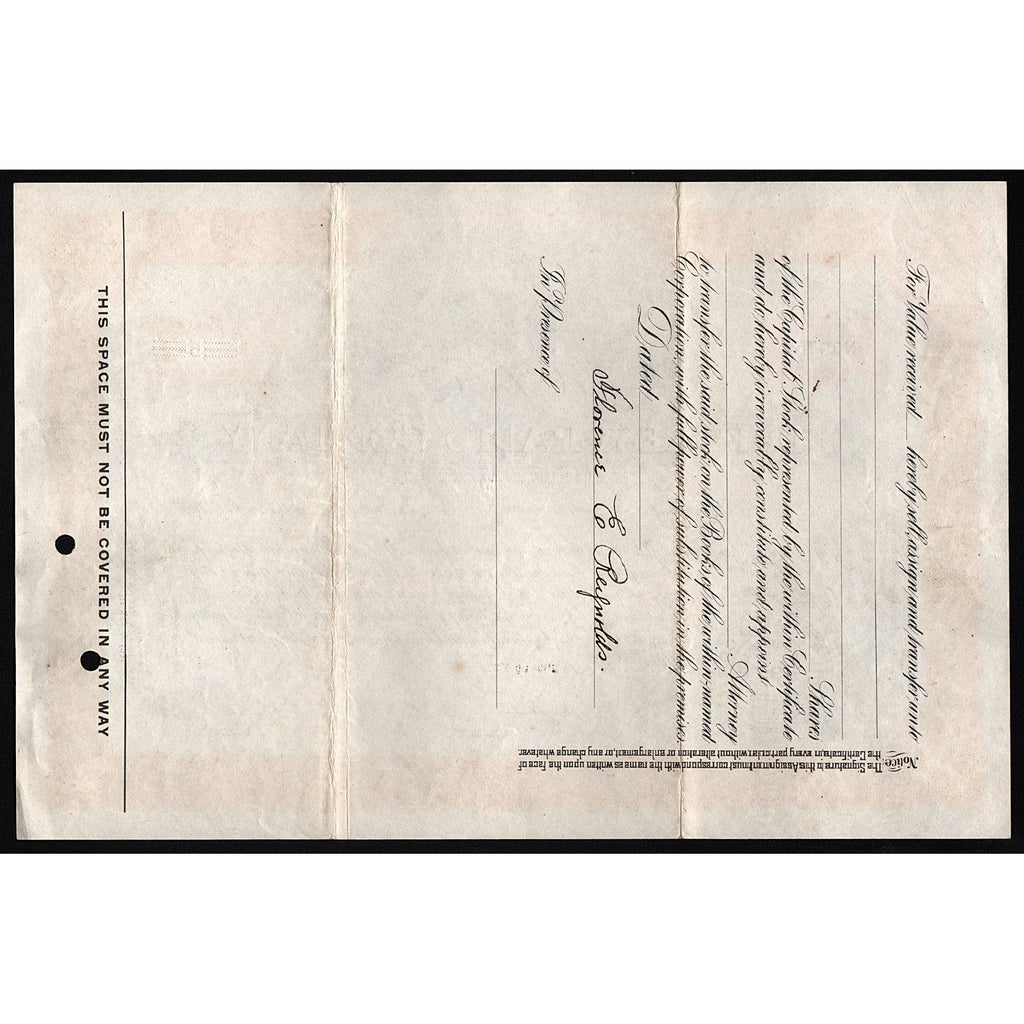 For Value received hereby sell, assign and transfer unto
Shares
of the Capital Stock represented by the within Certificate
and do hereby irrevocably constitute and appoint
Attorney
to transfer the said stock on the Books of the within-named
Corporation, with full power of substitution in the premises.
Dated
Florence E Reynolds.
In Presence of
Notice: The Signature to this Assignment must correspond with the name as written upon the face of
the Certificate, in every particular, without alteration or enlargement, or any change whatever.
THIS SPACE MUST NOT BE COVERED IN ANY WAY